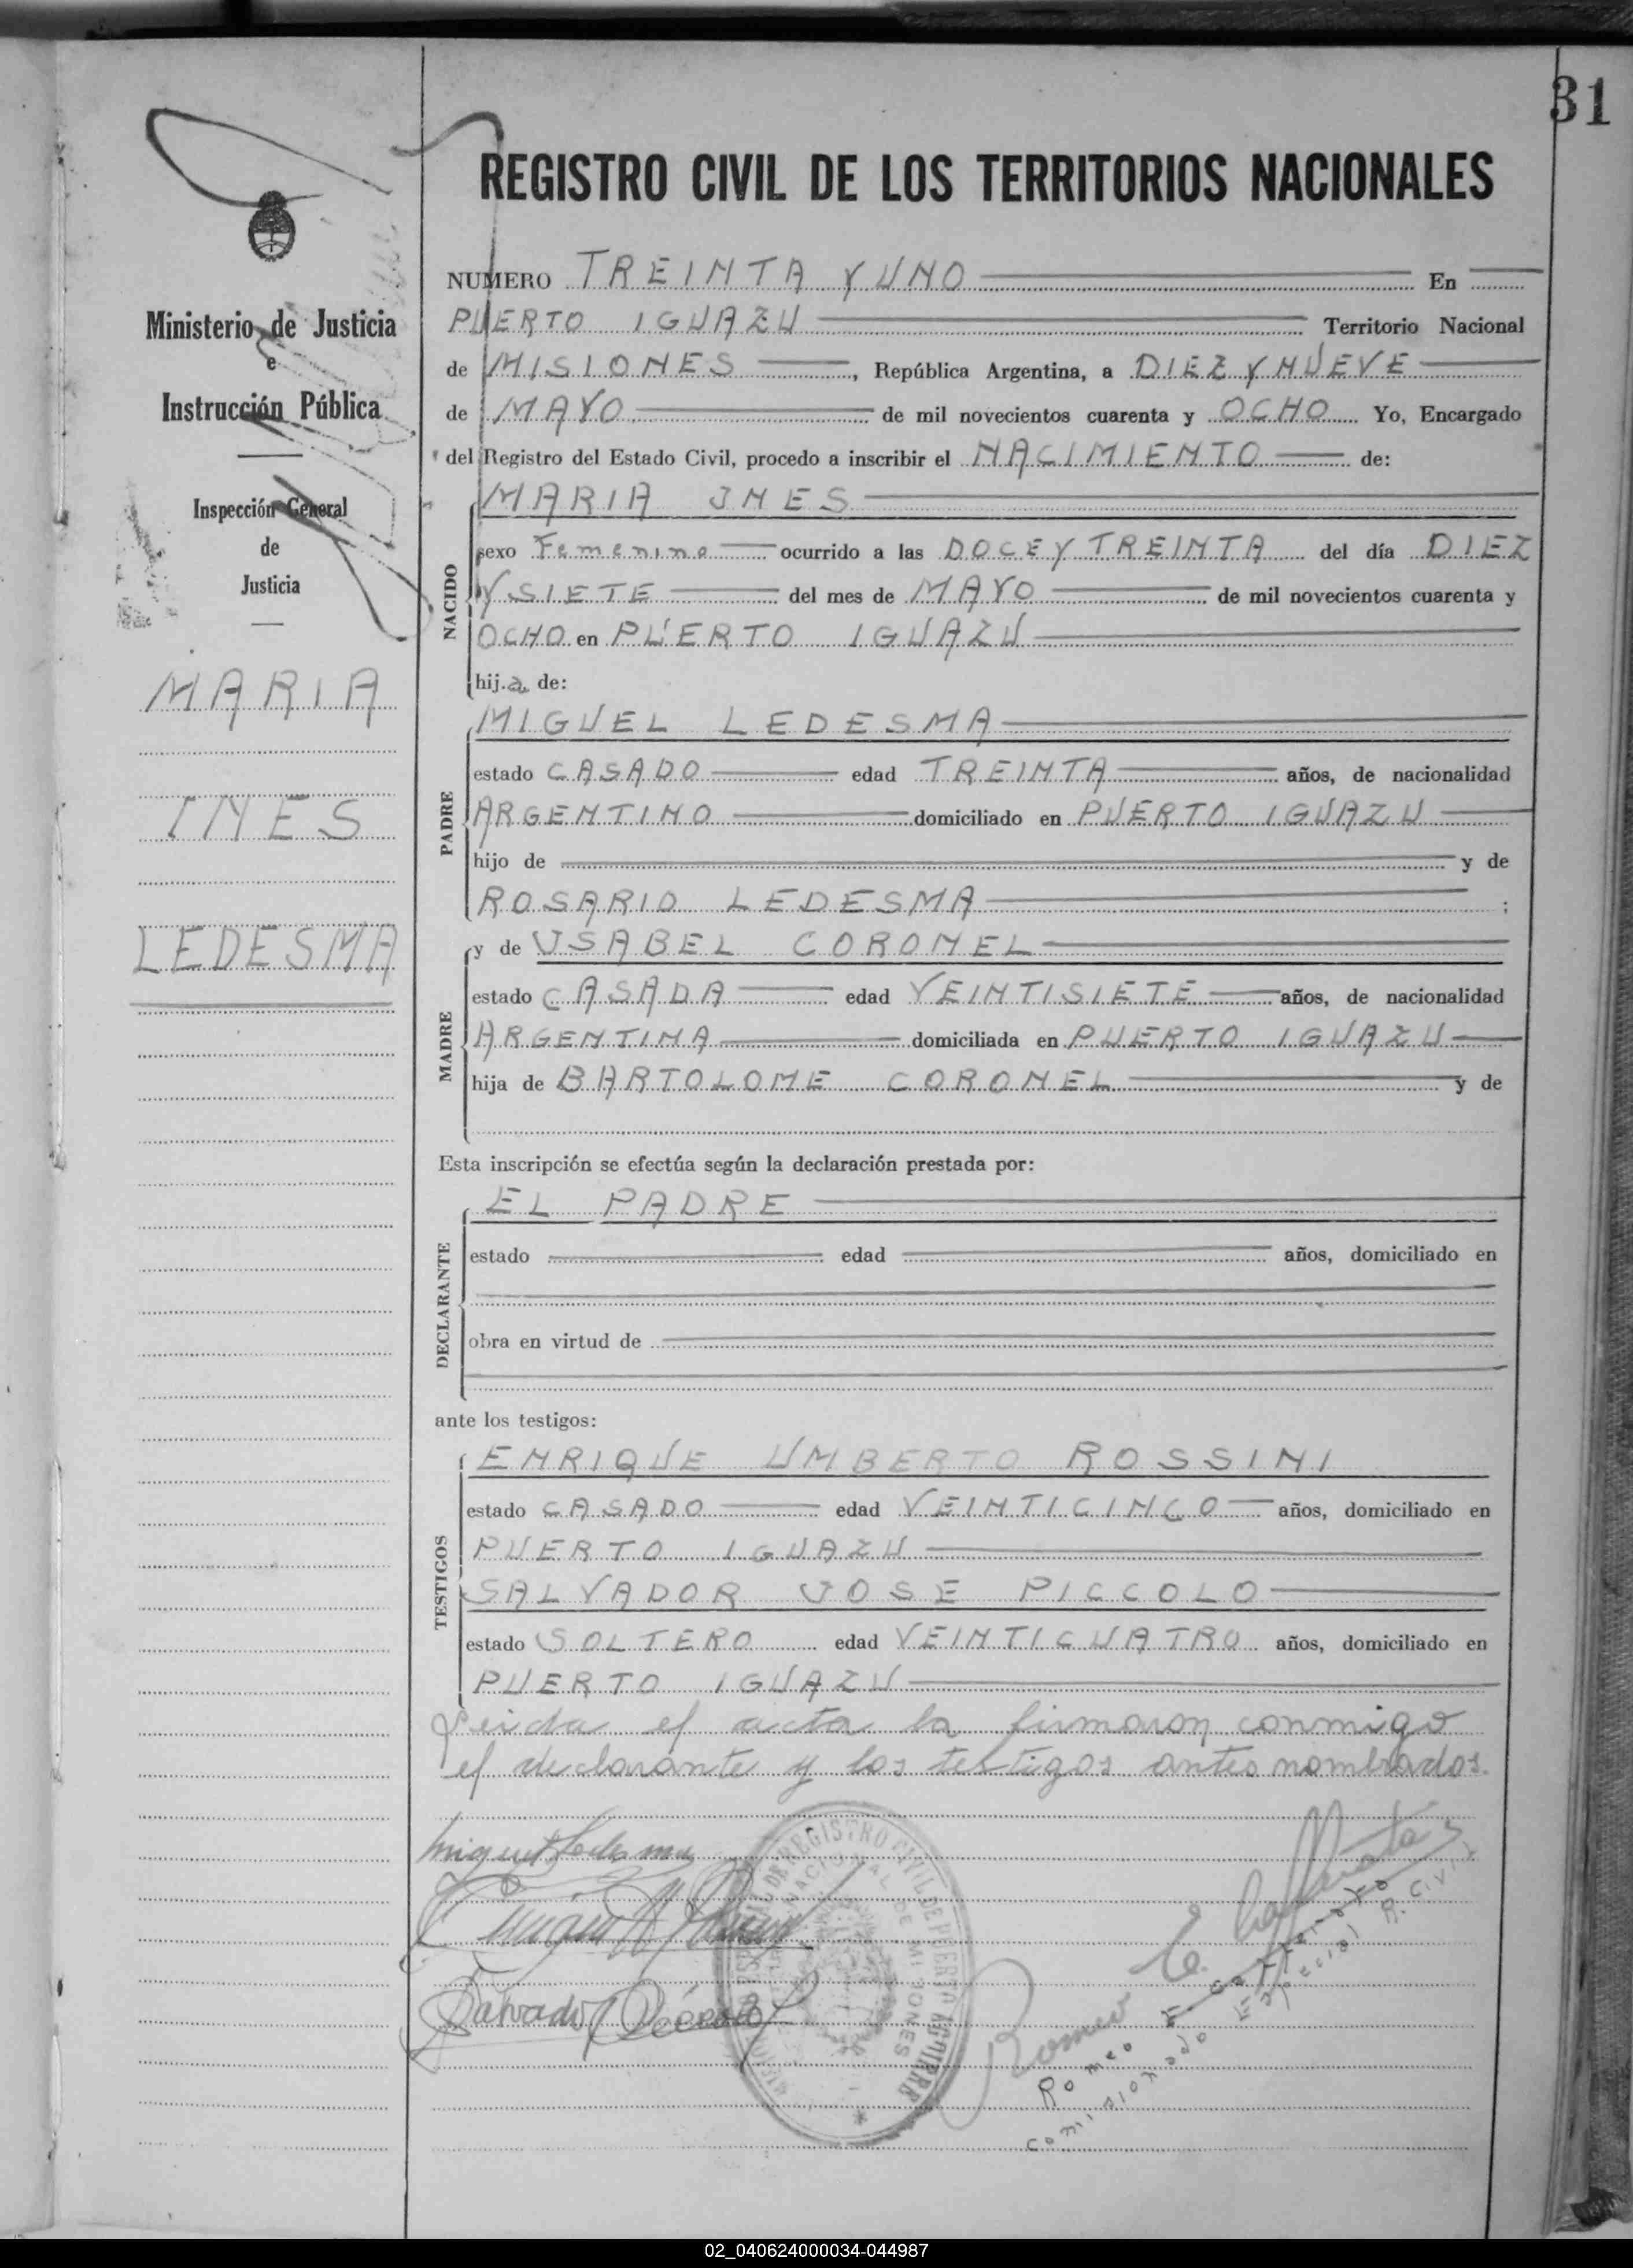 31
REGISTRO CIVIL DE LOS TERRITORIOS NACIONALES
Ministerio de Justicia
e
Instrucción Pública
Inspección General
de
Justicia
MARIA
INES
LEDESMA
NUMERO TREINTA Y UNO En
PUERTO IGUAZU Territorio Nacional
de MISIONES, República Argentina, a DIEZ Y NUEVE
de MAYO de mil novecientos cuarenta y OCHO Yo, Encargado
del Registro del Estado Civil, procedo a inscribir el NACIMIENTO de:
NACIDO
MARIA INES
sexo Femenino ocurrido a las DOCE Y TREINTA del día DIEZ
Y SIETE del mes de MAYO de mil novecientos cuarenta y
OCHO en PUERTO IGUAZU
hija de:
PADRE
MIGUEL LEDESMA
estado CASADO edad TREINTA años, de nacionalidad
ARGENTINO domiciliado en PUERTO IGUAZU
hijo de y de
ROSARIO LEDESMA ;
MADRE
y de YSABEL CORONEL
estado CASADA edad VEINTISIETE años, de nacionalidad
ARGENTINA domiciliada en PUERTO IGUAZU
hija de BARTOLOME CORONEL y de
Esta inscripción se efectúa según la declaración prestada por:
DECLARANTE
EL PADRE
estado edad años, domiciliado en
obra en virtud de
ante los testigos:
TESTIGOS
ENRIQUE UMBERTO ROSSINI
estado CASADO edad VEINTICINCO años, domiciliado en
PUERTO IGUAZU
SALVADOR JOSE PICCOLO
estado SOLTERO edad VEINTICUATRO años, domiciliado en
PUERTO IGUAZU
Leida el acta la firmaron conmigo
el declarante y los testigos antes nombrados.
Miguel Ledesma
Salvador Piccolo
REGISTRO CIVIL DE PUERTO AGUIRRE
NACIONAL DE MISIONES
Romeo E.
Romeo E.
Comisionado Especial R. Civil
02_040624000034-044987